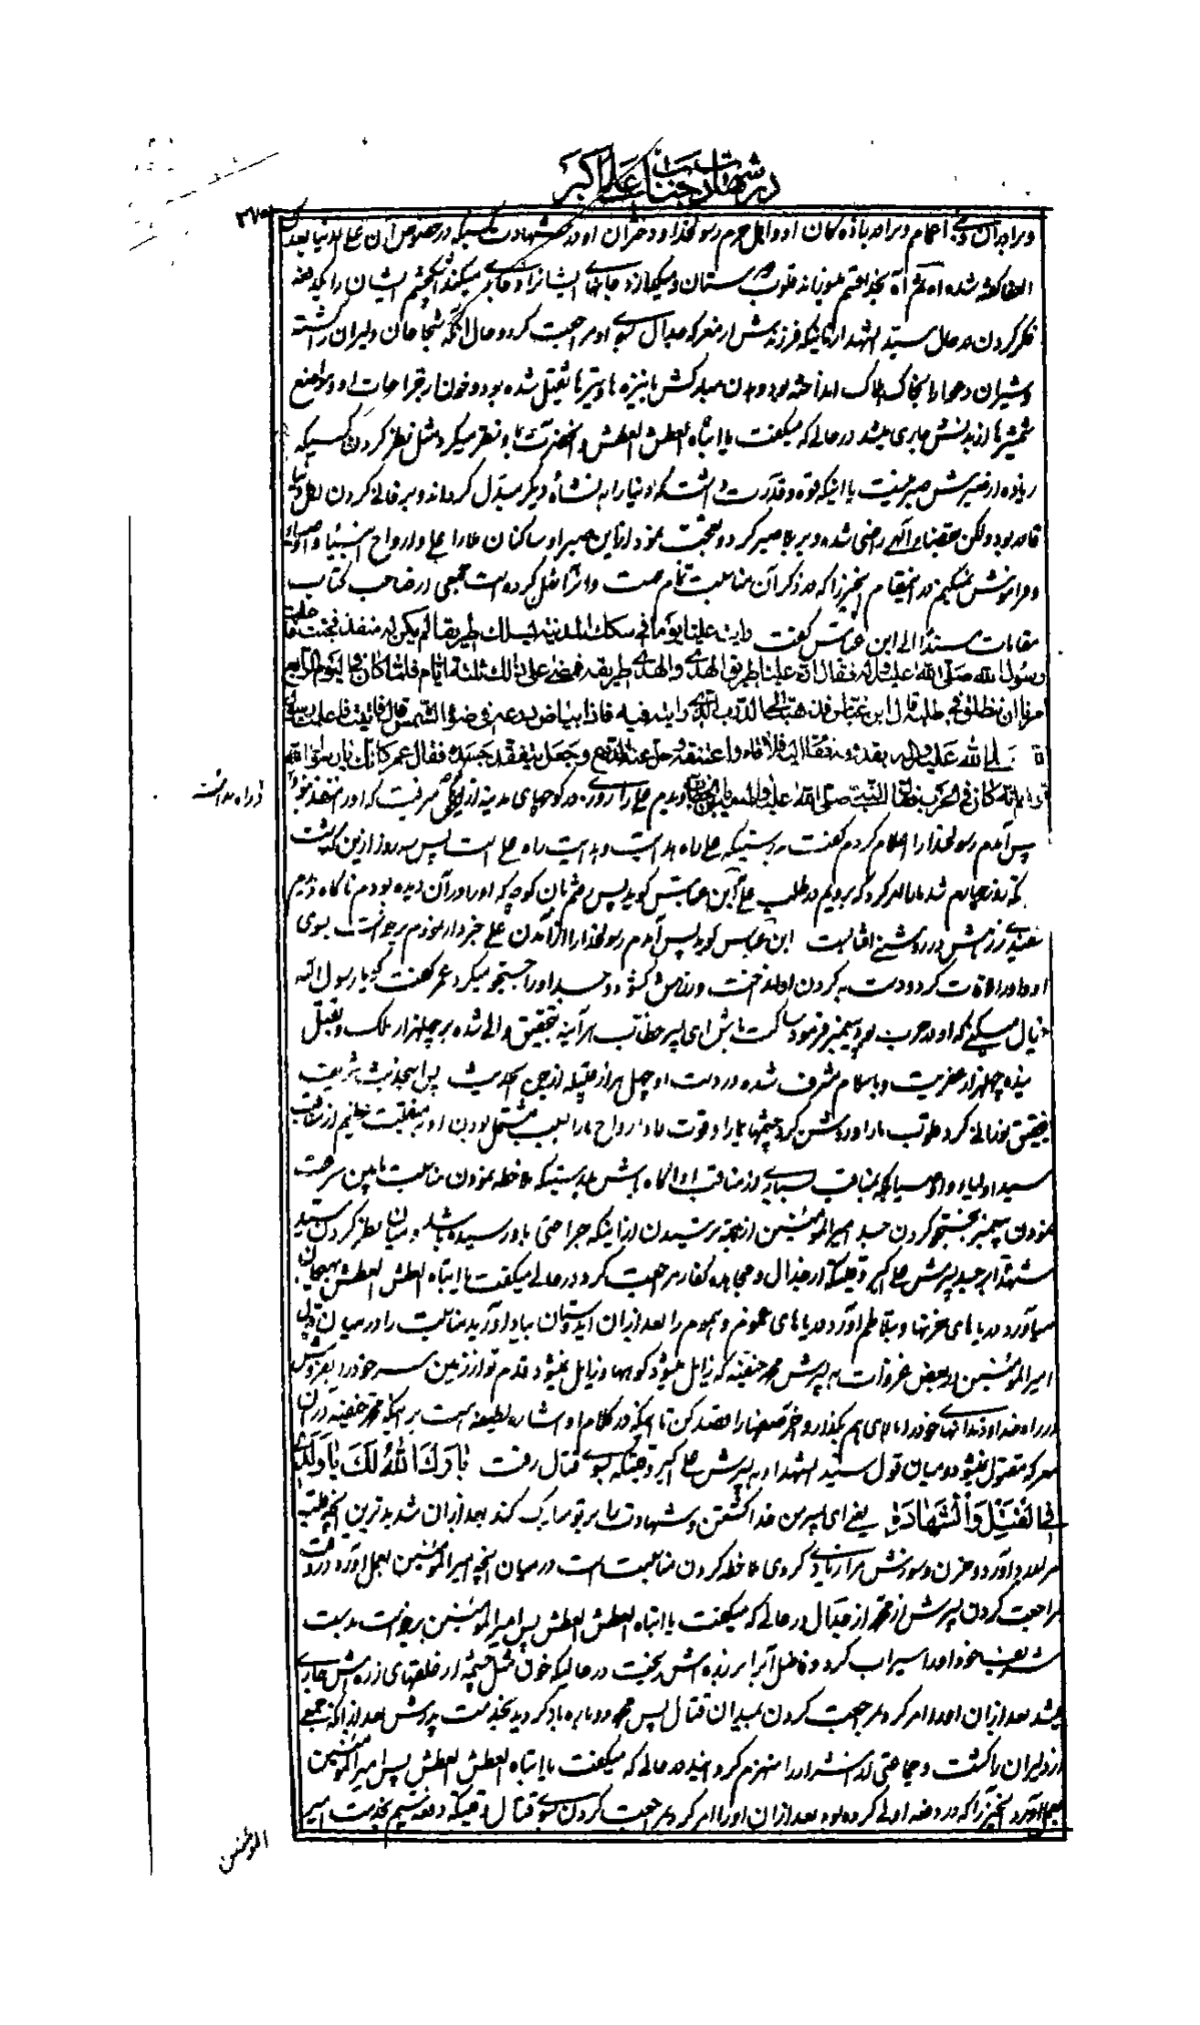 در شهادت جناب علی اکبر
۳۷۵
و برادران و اعمام و برادرزاده‌گان او و اهل حرم رسولخدا و دختران او در شهادت کسیکه در خصوص آن علی الدنیا بعدک
العفا گفته شده
فکر کردن در حال سید الشهدا زمانیکه فرزندش از معرکه جدال بسوی او مراجعت کرد و حال آنکه شجاعان و دلیران را کشته
و شیران را بخاک هلاک انداخته بود و بدن مبارکش با نیزه‌ها و تیرها ثقیل شده بود و خون از جراحات او و مواضع
شمشیرها از بدنش جاری میشد در حالی که میگفت یا ابتاه العطش العطش و آنحضرت باو نظر میکرد مثل نظر کردن کسیکه
زیاده از ضربش صبر نیست با اینکه قوه و قدرت داشت که دنیا را به نشأه دیگر مبدل گرداند و بر فانی کردن اهل دنیا
قادر بود ولکن بقضای الهی راضی شده و بر بلا صبر کرد و تعجب نمود از این صبر او ساکنان ملاء اعلی و ارواح انبیا و اوصیاء
و فراموش نمیکنیم در اینمقام آنچیز را که در ذکر آن مناسبت تمام است و آنرا نقل کرده است جمعی از صاحب کتاب
مقامات مسندا الی ابن عباس گفت رایت علیا یوما فی سکک المدینه یسلک طریقا لم یکن له منفذ فجئت فاعلمت
رسول الله صلی الله علیه و آله فقال ان علیا طریق الهدی والهدی طریقه فمضی علی ذلک ثلثة ایام فلما کان فی الیوم الرابع
امرنا ان ننطلق فی طلبه قال ابن عباس فذهبت الی الدرب الذی رایته فیه فاذا بیاض درعه فی ضوء الشمس قال فاتیت فاعلمت رسول
الله صلی الله علیه و آله بقدومه فقام الیه فلاقاه واعتنقه و حل عنه الدرع و جعل یتفقد جسده فقال عمر کانک یا رسول الله
ترا انه کان فی الحرب فقال النبی صلی الله علیه و آله
دیدم علی را روزی در کوچهای مدینه از راهی میرفت که او را منفذ نبود
ز راه مدانست
پس آمدم رسولخدا را اعلام کردم گفت بدرستیکه علی راه هدایت و هدایت راه علی است پس سه روز از این گذشت
که روز چهارم شد ما را امر کرد که برویم در طلب علی ابن عباس گوید پس رفتم بآن کوچه که او را در آن دیده بودم ناگاه دیدم
سفیدی زرهش در روشنی آفتابست ابن عباس گوید پس آمدم رسولخدا را از آمدن علی خبردار نمودم برخواست بسوی
او و او را ملاقات کرد و دست به گردن او انداخت و زرهش گشوده و جسد او را جستجو میکرد عمر گفت گویا یا رسول الله
خیال میکنی که او در حرب بود پیغمبر فرمود ساکت باش ای پسر خطاب هر آینه بتحقیق والی شده بر چهل هزار ملک و بقتل
رسانیده چهل هزار عفریت و باسلام مشرف شده در دست او چهل هزار قبیله از جن الحدیث پس اینحدیث شریف
بتحقیق نورانی کرد قلوب ما را و روشن کرد چشمهای ما را و قوت داد ارواح ما را بسبب مشتمل بودن او به منقبت عظیم از مناقب
سید اولیاء و اوصیا
نمودن پیغمبر بجستجو کردن جسد امیر المؤمنین از جهة ترسیدن از اینکه جراحتی باو رسیده باشد و میان نظر کردن سید
شهدا بر جسد پسرش علی اکبر وقتیکه از جدال و مجاهده کفار مراجعت کرد در حالی میگفت یا ابتاه العطش العطش بهیجان
میآورد دریاهای حزنها و بتلاطم آورد دریاهای غموم و هموم را بعد از آن ای دوستان بیاد آورید مناسبت را در میان قول
امیر المؤمنین در بعض غزوات به پسرش محمد حنفیه که زایل میشود کوهها و زایل نمیشود قدم تو از زمین سر خود را
در راه خدا و دندانهای خود را بالای هم بگذار و آخر صفها را قصد کن تا اینکه در کلام او اشاره لطیفه است بر اینکه محمد حنفیه در آن
معرکه مقتول نمیشود و میان قول سید الشهدا به پسرش علی اکبر وقتیکه بسوی قتال رفت بارک الله لک یا ولدی
فی القتل والشهادة یعنی ای پسر من خدا کشتن و شهادت را بر تو مبارک کند بعد از آن شدیدترین آنچه قلب
مرا بدرد آورد و حزن و سوزش مرا زیاد کردی ملاحظه کردن مناسبت است در میان آنچه امیر المؤمنین بعمل آورد در وقت
مراجعت کردن پسرش از جدال در حالی که میگفت یا ابتاه العطش العطش پس امیر المؤمنین برخواست بدست
شریف خود او را سیراب کرد و فاضل آبرا بر زره‌اش ریخت در حالیکه خون مثل چشمه از حلقهای زره‌اش جاری
میشد بعد از آن او را امر کرد بمراجعت کردن بمیدان قتال پس محمد دوباره باز گردید بخدمت پدرش بعد از آنکه جمعی
از دلیران را کشت و جماعتی از اشرار را منهزم گردانید در حالی که میگفت یا ابتاه العطش العطش پس امیر المؤمنین
بعمل آورد آنچیز را که در دفعه اولی کرده بود بعد از آن او را امر کرد بمراجعت کردن بسوی قتال وقتیکه دفعه سیم بخدمت امیر
المؤمنین